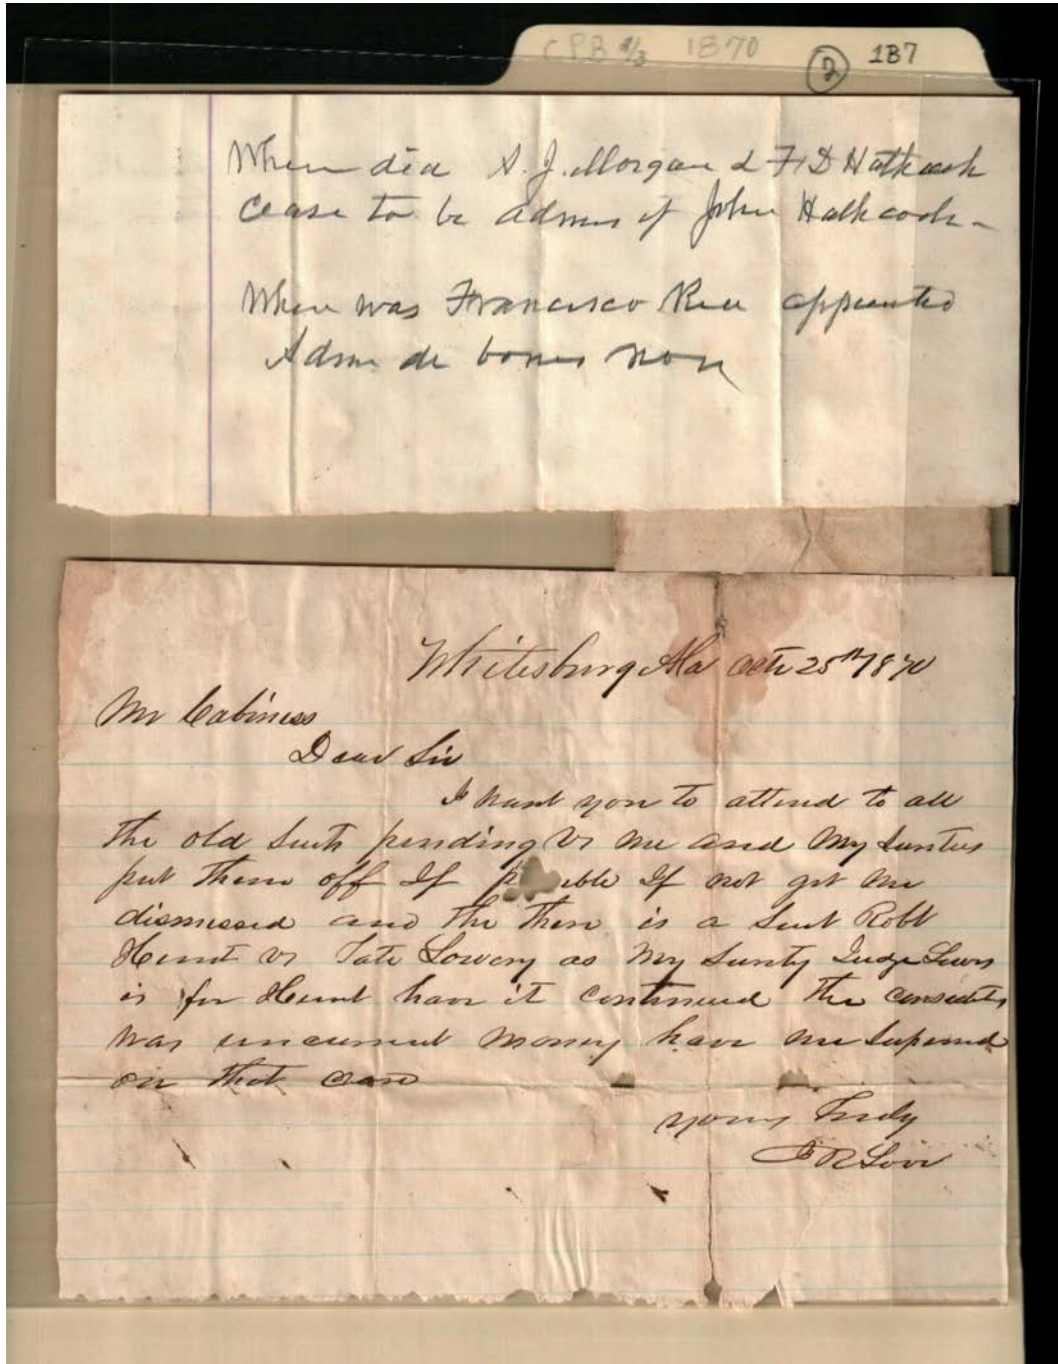 CPB 2/3 1870 2 1B7
When did S. J. Morgan & F. D Hathcock
cease to be admrs of John Hathcock -
When was Francisco Rice appointed
Admr de bonis non
Whitesburg Ala Octr 25th 1870
Mr Cabiness
Dear Sir
I want you to attend to all
the old suits pending vs me and my surties
put them off If p ible If not get me
dismissed and the there is a suit Robt
Hunt vs Tate Lowery as my surity Judge
is for Hunt have it continued the
was uncurrent money have me
on that case
yours Truly